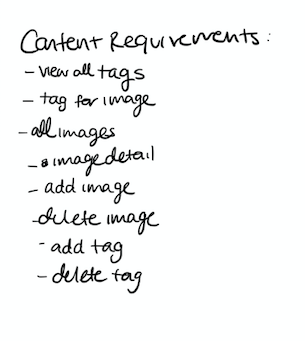 Content Requirements:
- view all tags
- tag for image
- all images
- image detail
- add image
- delete image
- add tag
- delete tag